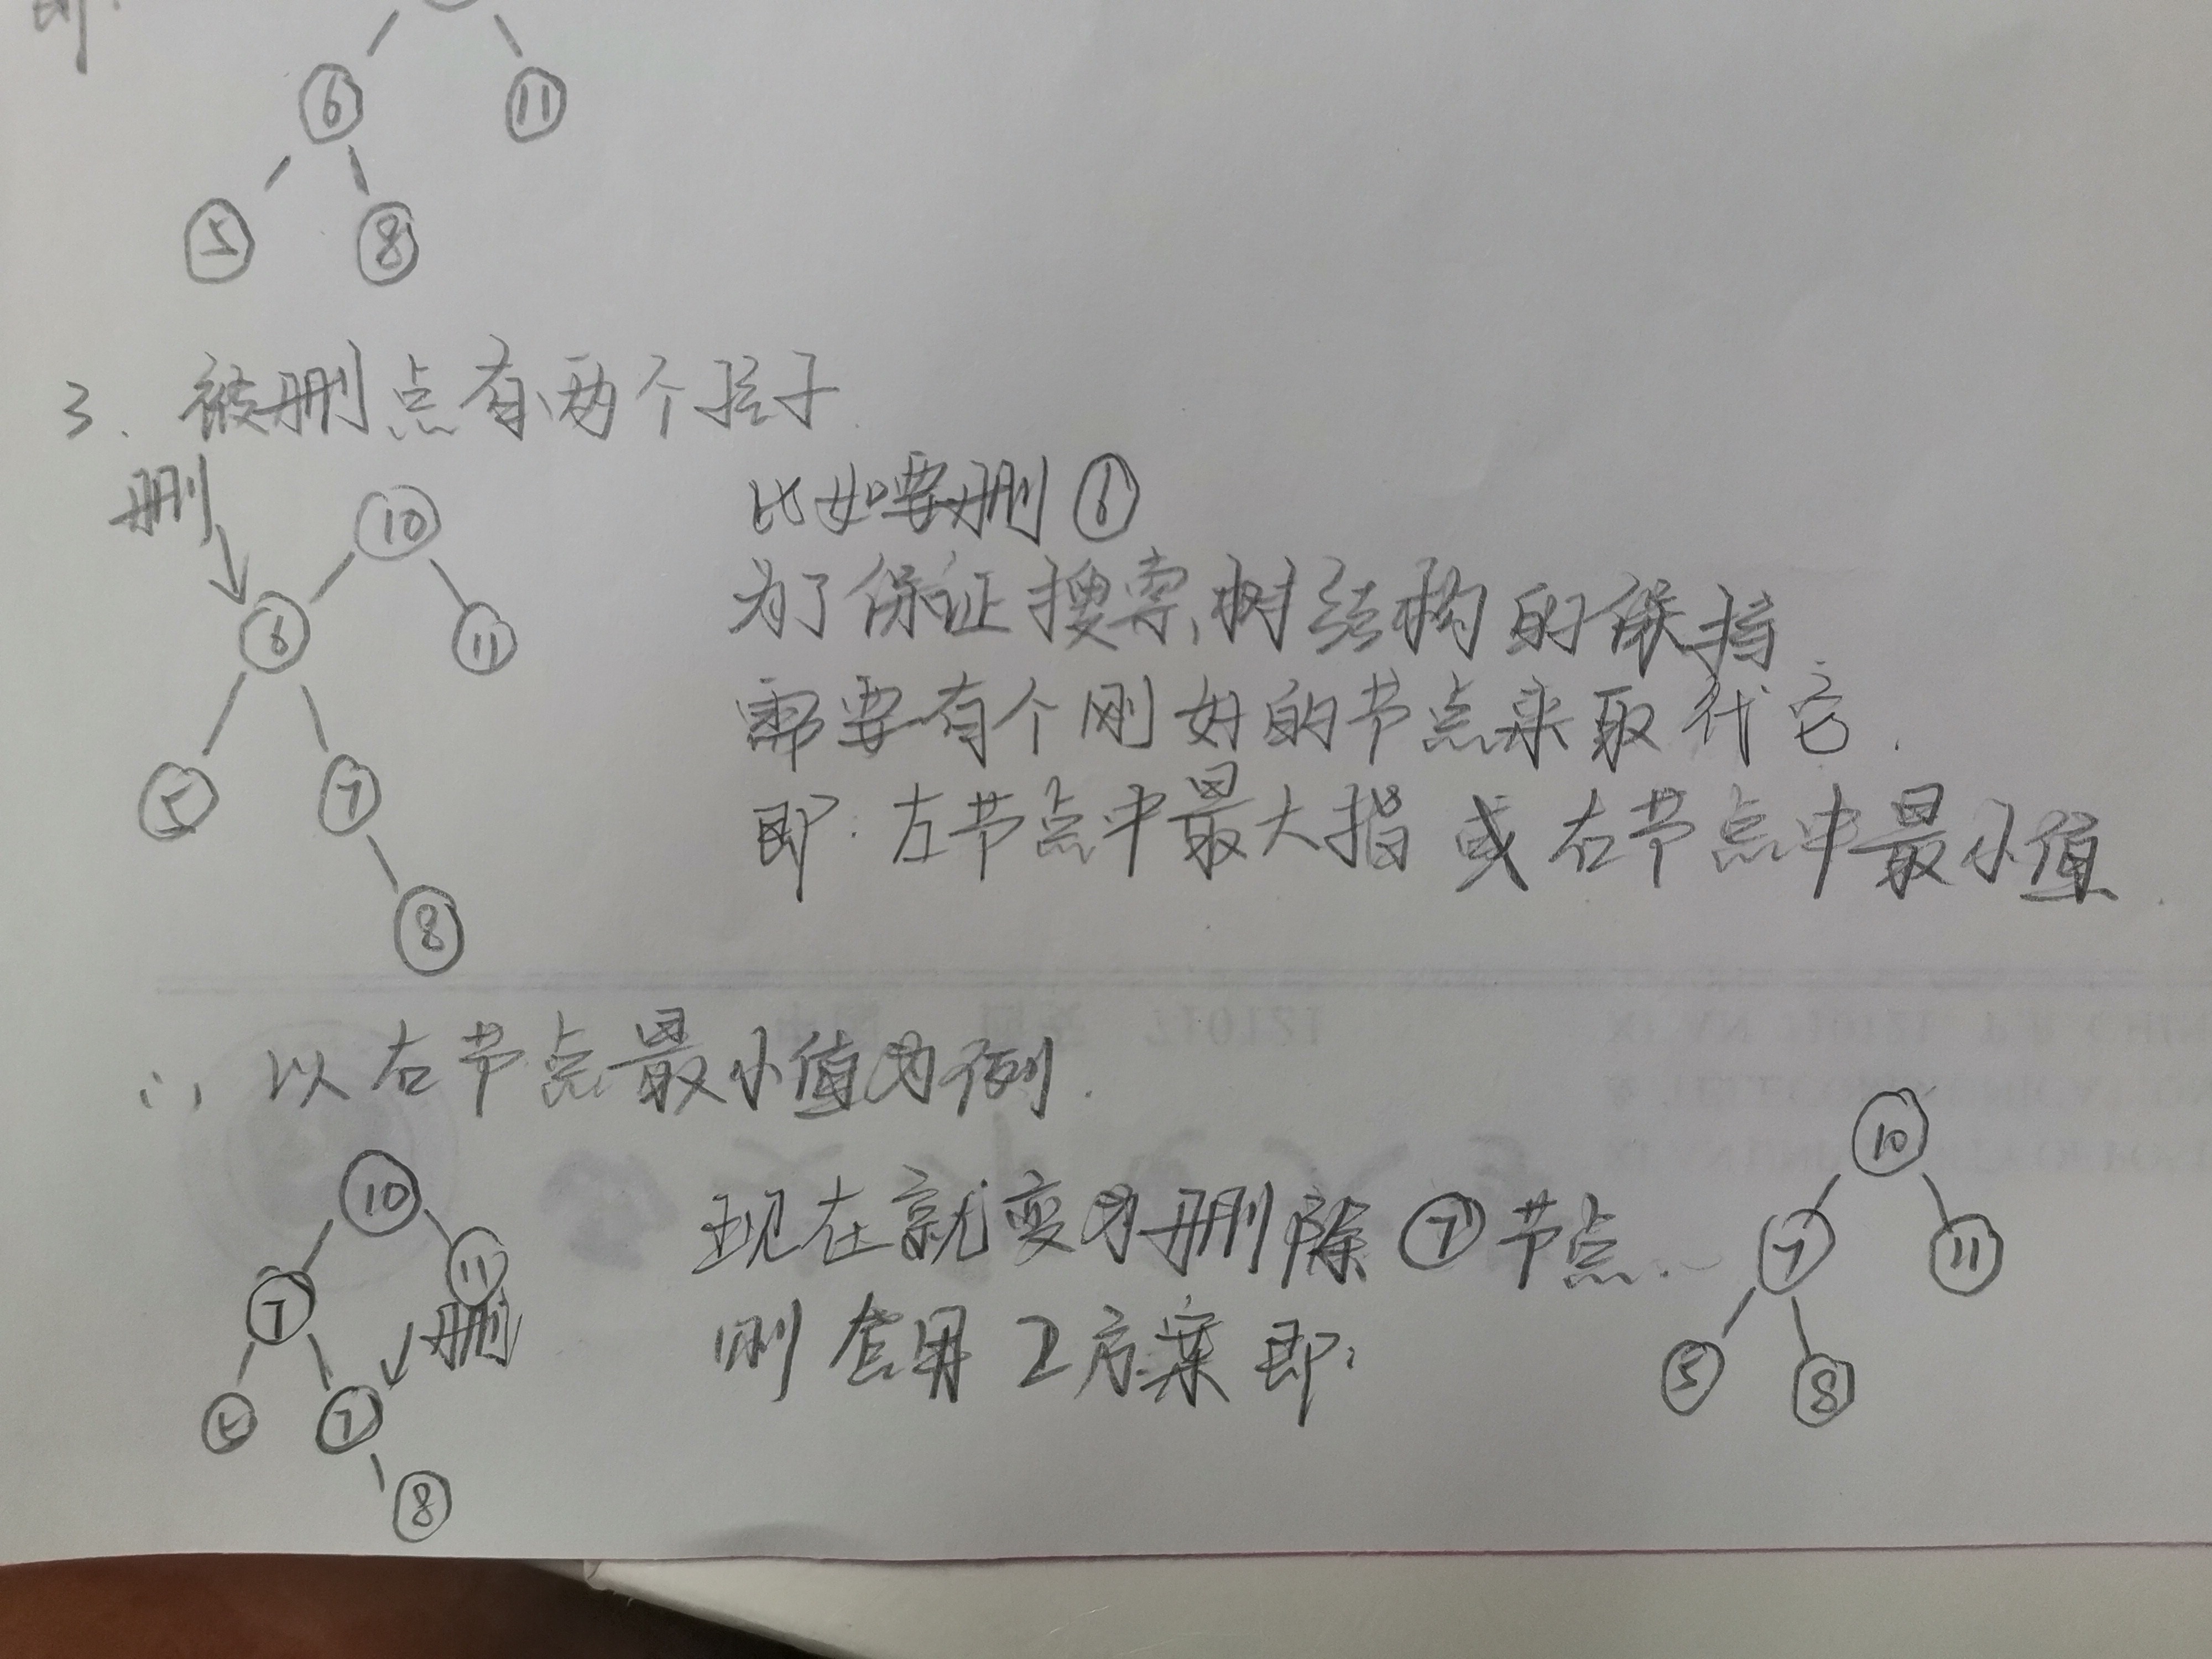 即:
6 11
5 8
3. 被删点有两个孩子
删
10
6 11
5 7
8
比如要删⑥
为了保证搜索树结构的
需要有个刚好的节点来取代它.
即:左节点中最大指 或 右节点中最小值
∴ 以右节点最小值为例.
10
7 11
删
5 7
8
现在就变为删除⑦节点.
则套用2方案即:
10
7 11
5 8